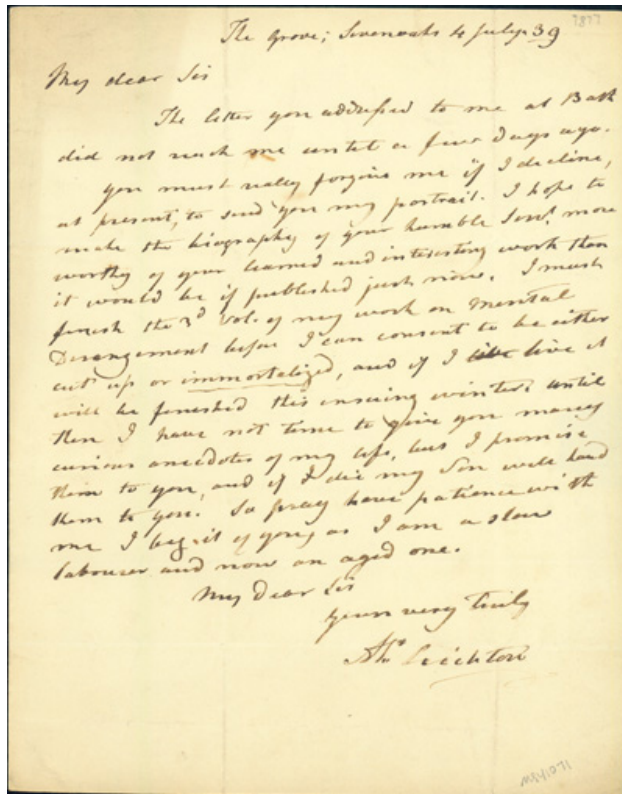 The Grove; Sevenoaks 4 July. 39
7877
My dear Sir
The letter you addressed to me at Bath
did not reach me until a few Days ago.
you must really forgive me if I decline,
at present, to send you my portrait. I hope to
make the biography of your humble Servt. more
worthy of your learned and interesting work than
it would be if published just now. I must
finish the 3d Vol. of my work on Mental
Derangement before I can consent to be either
cut up or immortalized, and if I live it
will be finished this ensuing winter. until
then I have not time to give you many
curious anecdotes of my life, but I promise
them to you, and if I die my Son will hand
them to you. So pray have patience with
me I beg it of you, as I am a slow
labourer and now an aged one.
My Dear Sir
yours very truly